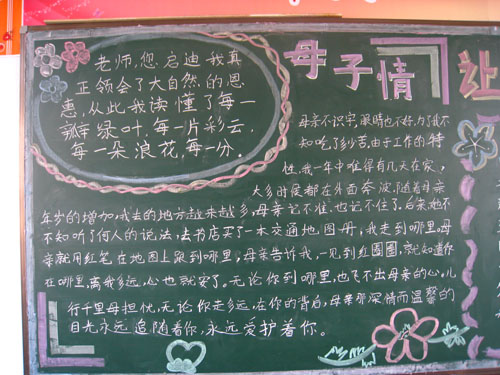 老师,您启迪我真
正领会了大自然的恩
惠,从此我读懂了每一
瓣绿叶,每一片彩云,
每一朵浪花,每一分.
母子情
让
母亲不识字,眼睛也不好,为了我不
知吃了多少苦,由于工作的特
性,我一年中难得有几天在家,
大多时候都在外面奔波,随着母亲
年岁的增加,我去的地方越来越多,母亲记不准,也记不住了.后来,她不
不知听了何人的说法,去书店买了一本交通地图册,我走到哪里,母
亲就用红笔在地图上跟到哪里,母亲告诉我,一见到红圈圈,就知道你
在哪里,离我多远,心也就安了,无论你到哪里,也飞不出母亲的心,儿
行千里母担忧,无论你走多远,在你的背后,母亲那深情而温馨的
目光永远追随着你,永远爱护着你。